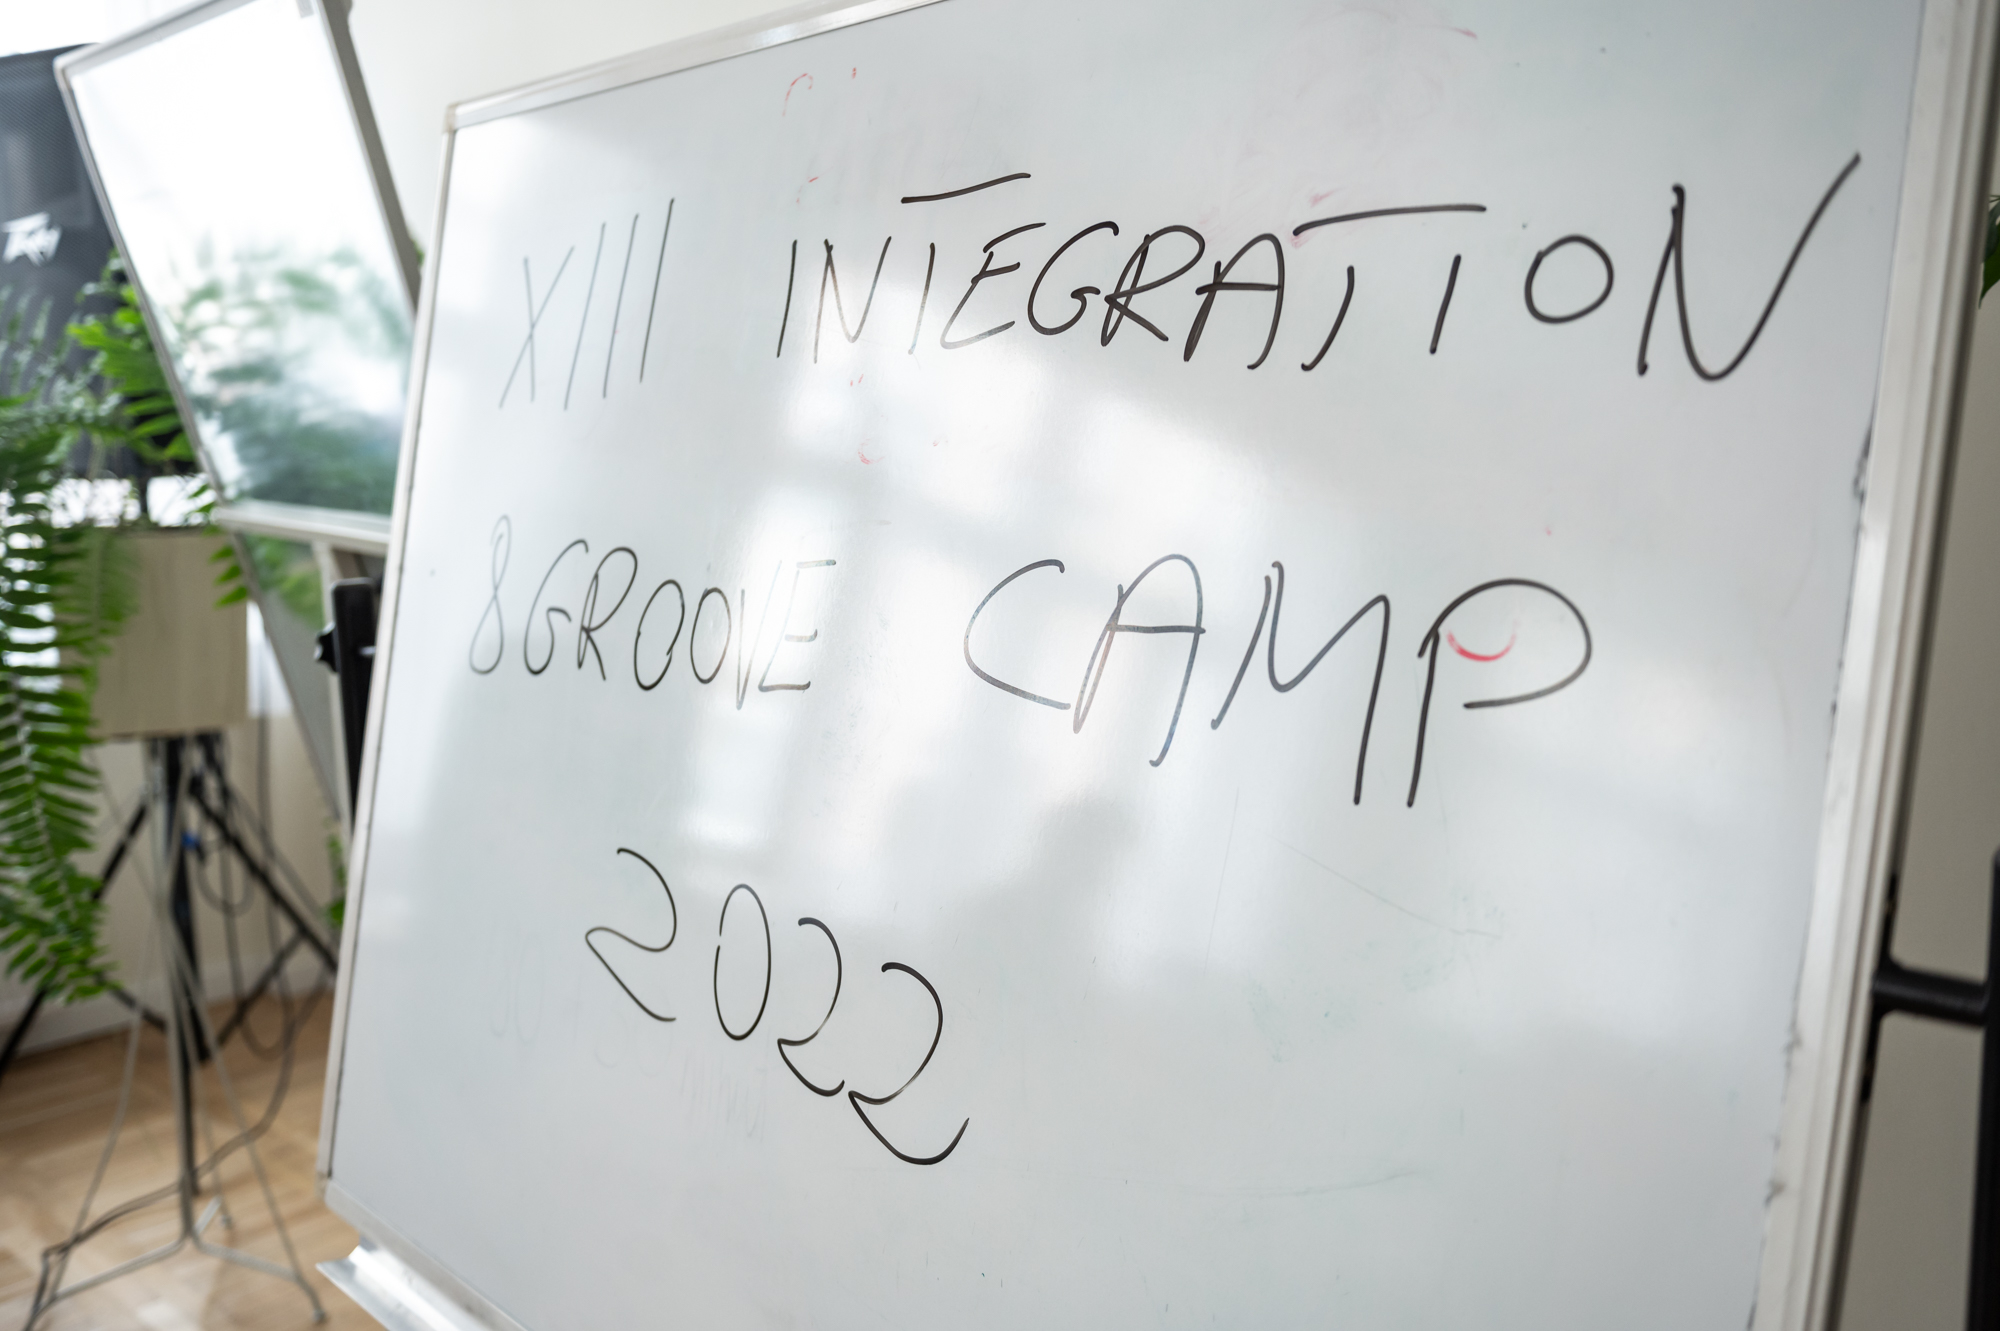 XIII INTEGRATION
8GROOVE CAMP
2022